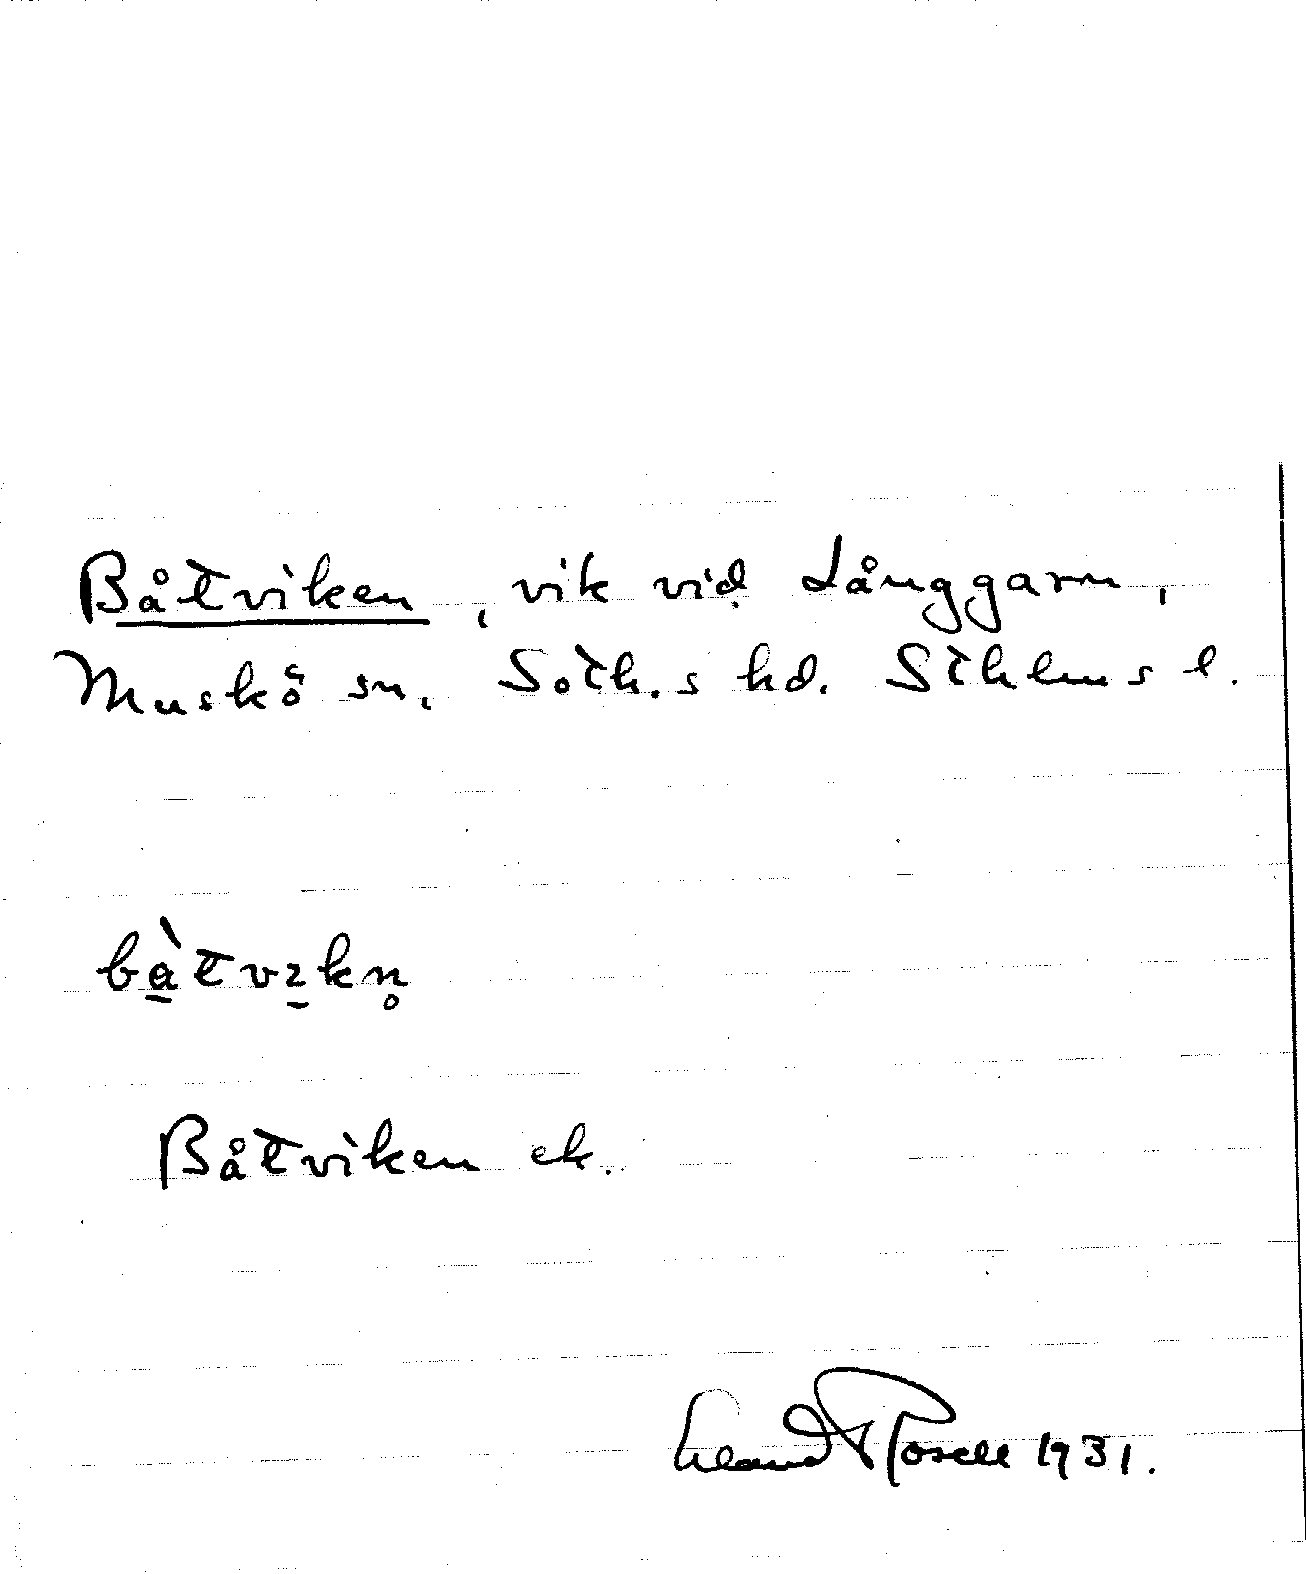 Båtviken, vik vid Långgarn,
Muskö sn. Soth.s hd. Sthlms l.
bàtvıkn̥
Båtviken ek.
Erland Rosell 1931.